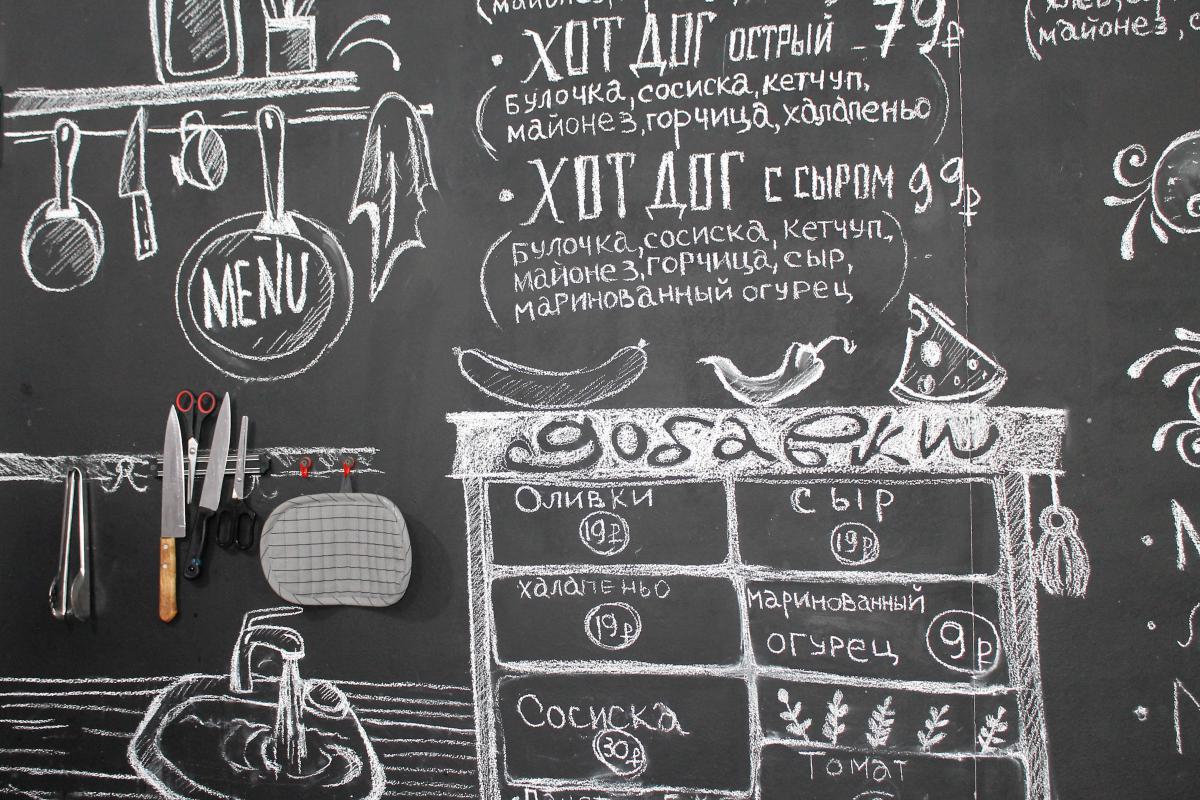 (майонез,
• ХОТ ДОГ ОСТРЫЙ 79₽
(булочка, сосиска, кетчуп,
майонез, горчица, халапеньо)
• ХОТ ДОГ С СЫРОМ 99₽
(булочка, сосиска, кетчуп,
майонез, горчица, сыр,
маринованный огурец)
майонез,
MENU
добавки
Оливки
19₽
Сыр
19₽
халапеньо
19₽
маринованный
огурец 9₽
Сосиска
30₽
Томат